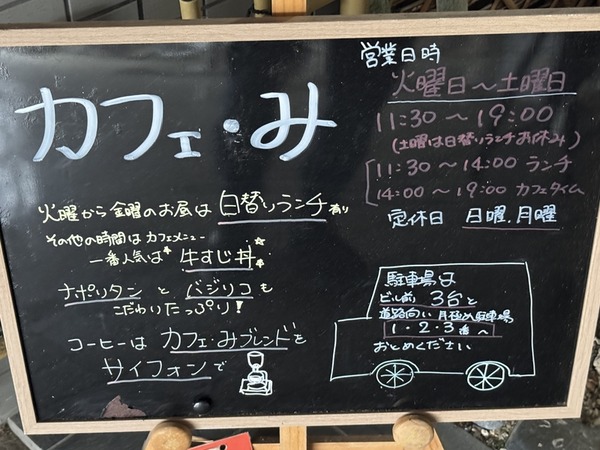 カフェ・み
火曜から金曜のお昼は 日替りランチ有り
その他の時間はカフェメニュー
一番人気は 牛すじ丼
ナポリタン と バジリコも
こだわりたっぷり!
コーヒーは カフェ・みブレンドを
サイフォンで
営業日時
火曜日〜土曜日
11:30〜19:00
(土曜は日替りランチお休み)
11:30〜14:00 ランチ
14:00〜19:00 カフェタイム
定休日 日曜.月曜
駐車場は
ビル前 3台と
道路向い 月極め駐車場
1・2・3番へ
おとめください